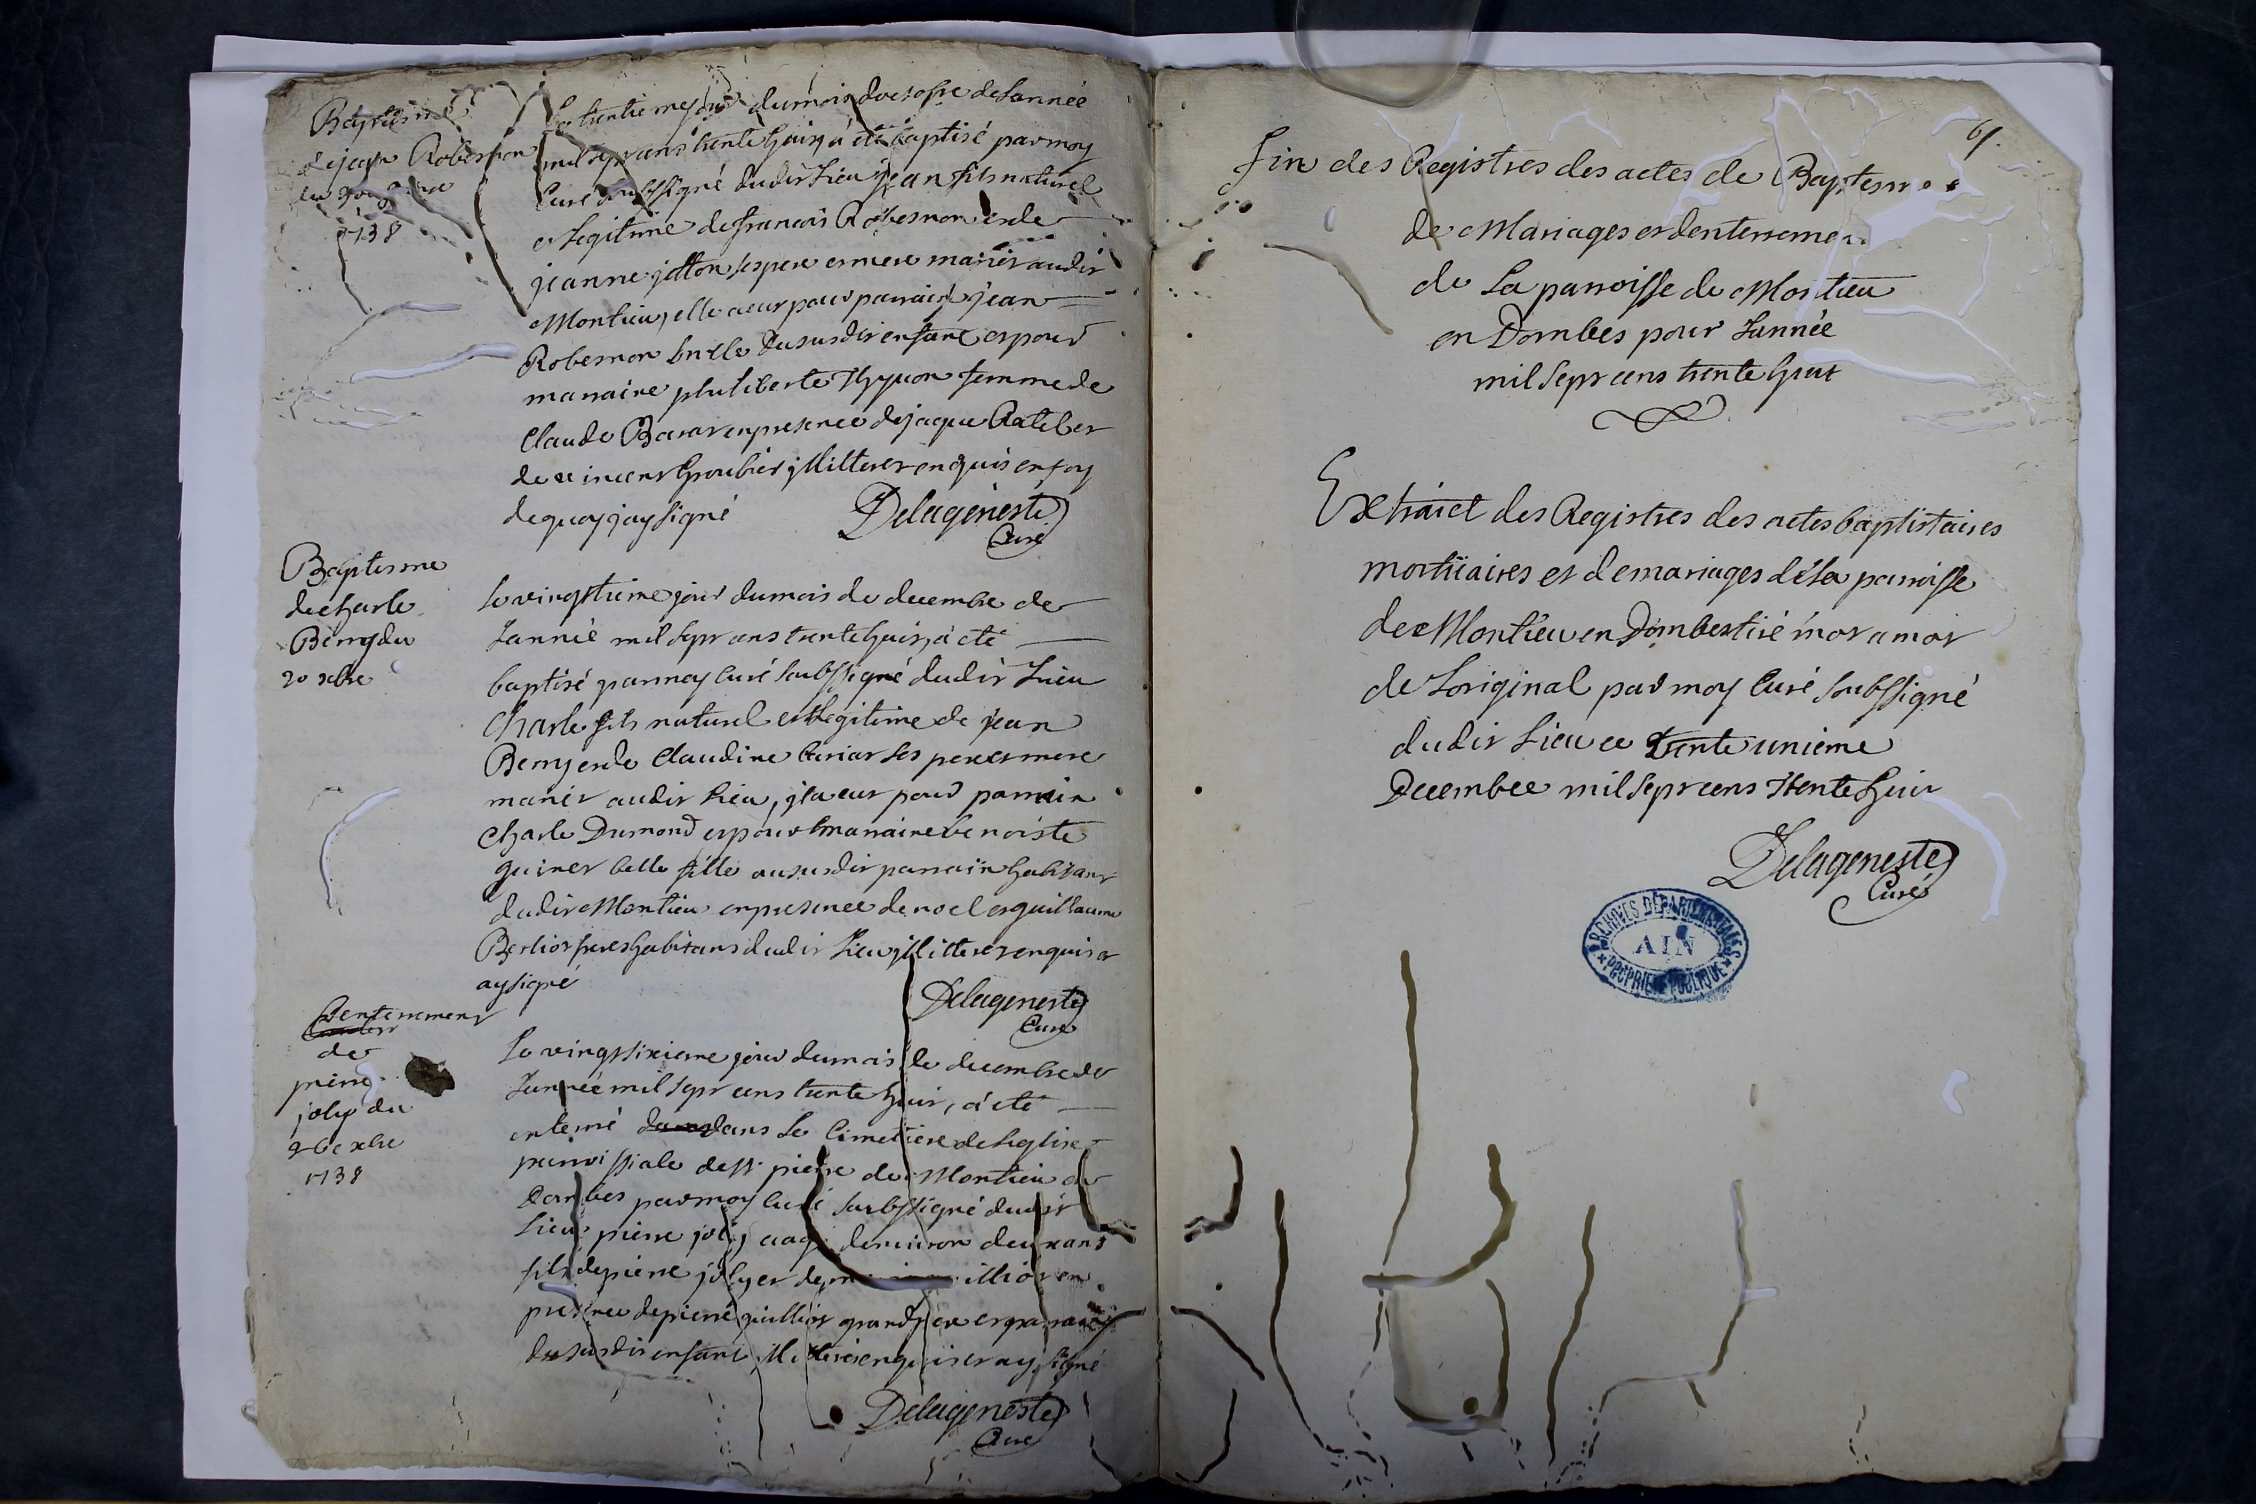 Baptesme
de jean Robesmon
du
1738
Le trentieme jour du mois doctobre de Lannée
mil sept cens trente huit, á eté baptisé par moy
Curé soubssigné dudit Lieu jean fils naturel
et Legitime de francois Robesmon et de
jeanne jotton ses pere et mere mariés audit
Montieu, elle a eut pour parrain jean
Robesmon du susdit enfant et pour
marraine philiberte femme de
Claude Barat en presence de jaque Ratel et
de vincent illiteres enquis en foy
de quoy jay signé
Delageneste
Curé
Baptesme
de charle
Berry du
20 xbre
Le vingtieme jour du mois de decembre de
Lannée mil sept cens trente huit, á eté
baptisé par moy Curé soubssigné dudit Lieu
Charle fils naturel et Legitime de jean
Berry et de Claudine ses pere et mere
mariés audit Lieu, il a eut pour parrain
Charle Dumond et pour marraine benoiste
guinet belle fille au susdit parrain habitans
dudit Montieu en presence de noel et guillaume
Berliot freres habitans dudit Lieu illiteres enquis et
ay signé
Delageneste
Curé
Denterrement
de
pierre
joly du
26 xbre
1738
Le vingt sixieme jour du mois de decembre de
Lannée mil sept cens trente huit, á eté
enterré dans Le Cimetiere de Leglise
parroissiale de st pierre de Montieu en
Dombes par moy Curé soubssigné dudit
Lieu pierre joly, agé denviron deux ans
fils de pierre joly et de en
presence de pierre guilliot grand pere et parrain
du susdit enfant illiteres enquis et ay signé
Delageneste
Curé
fin des Registres des actes de Baptesme
de Mariages et denterremen
de La parroisse de Montieu
en Dombes pour Lannée
mil sept cens trente huit
Extraict des Registres des actes baptistaires
mortüaires et de mariages de La parroisse
de Montieu en Dombes tiré mot a mot
de Loriginal par moy Curé soubssigné
dudit Lieu ce trente unieme
Decembre mil sept cens trente huit
Delageneste
Curé
ARCHIVES DÉPARTEMENTALES
AIN
PROPRIÉTÉ PUBLIQUE